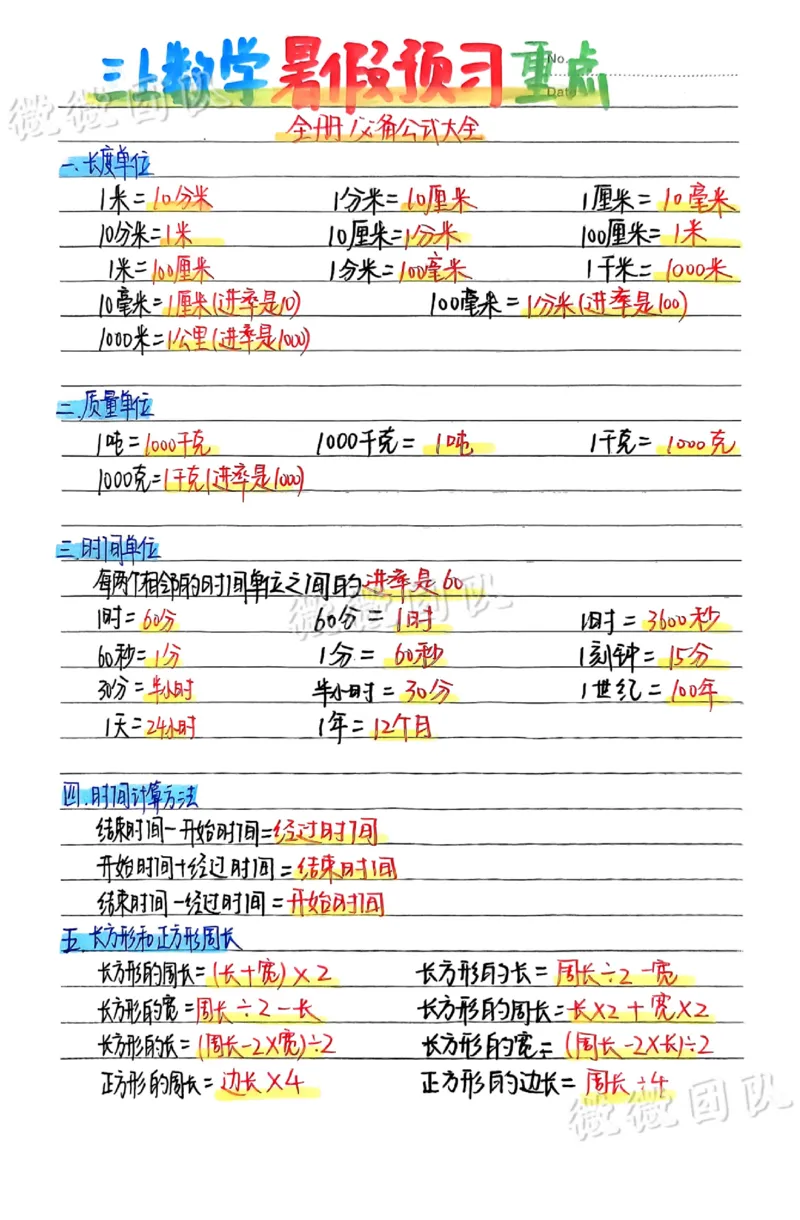 三上数学暑假预习重点
No.
Date
全册必备公式大全
一、长度单位
1米=10分米 1分米=10厘米 1厘米=10毫米
10分米=1米 10厘米=1分米 100厘米=1米
1米=100厘米 1分米=100毫米 1千米=1000米
10毫米=1厘米(进率是10) 100毫米=1分米(进率是100)
1000米=1公里(进率是1000)
二.质量单位
1吨=1000千克 1000千克=1吨 1千克=1000克
1000克=1千克(进率是1000)
三.时间单位
每两个相邻的时间单位之间的进率是60
1时=60分 60分=1时 1时=3600秒
60秒=1分 1分=60秒 1刻钟=15分
30分=半小时 半小时=30分 1世纪=100年
1天=24小时 1年=12个月
四.时间计算方法
结束时间-开始时间=经过时间
开始时间+经过时间=结束时间
结束时间-经过时间=开始时间
五.长方形和正方形周长
长方形的周长=(长+宽)×2 长方形的长=周长÷2-宽
长方形的宽=周长÷2-长 长方形的周长=长×2+宽×2
长方形的长=(周长-2×宽)÷2 长方形的宽=(周长-2×长)÷2
正方形的周长=边长×4 正方形的边长=周长÷4
微微团队
微微团队
微微团队